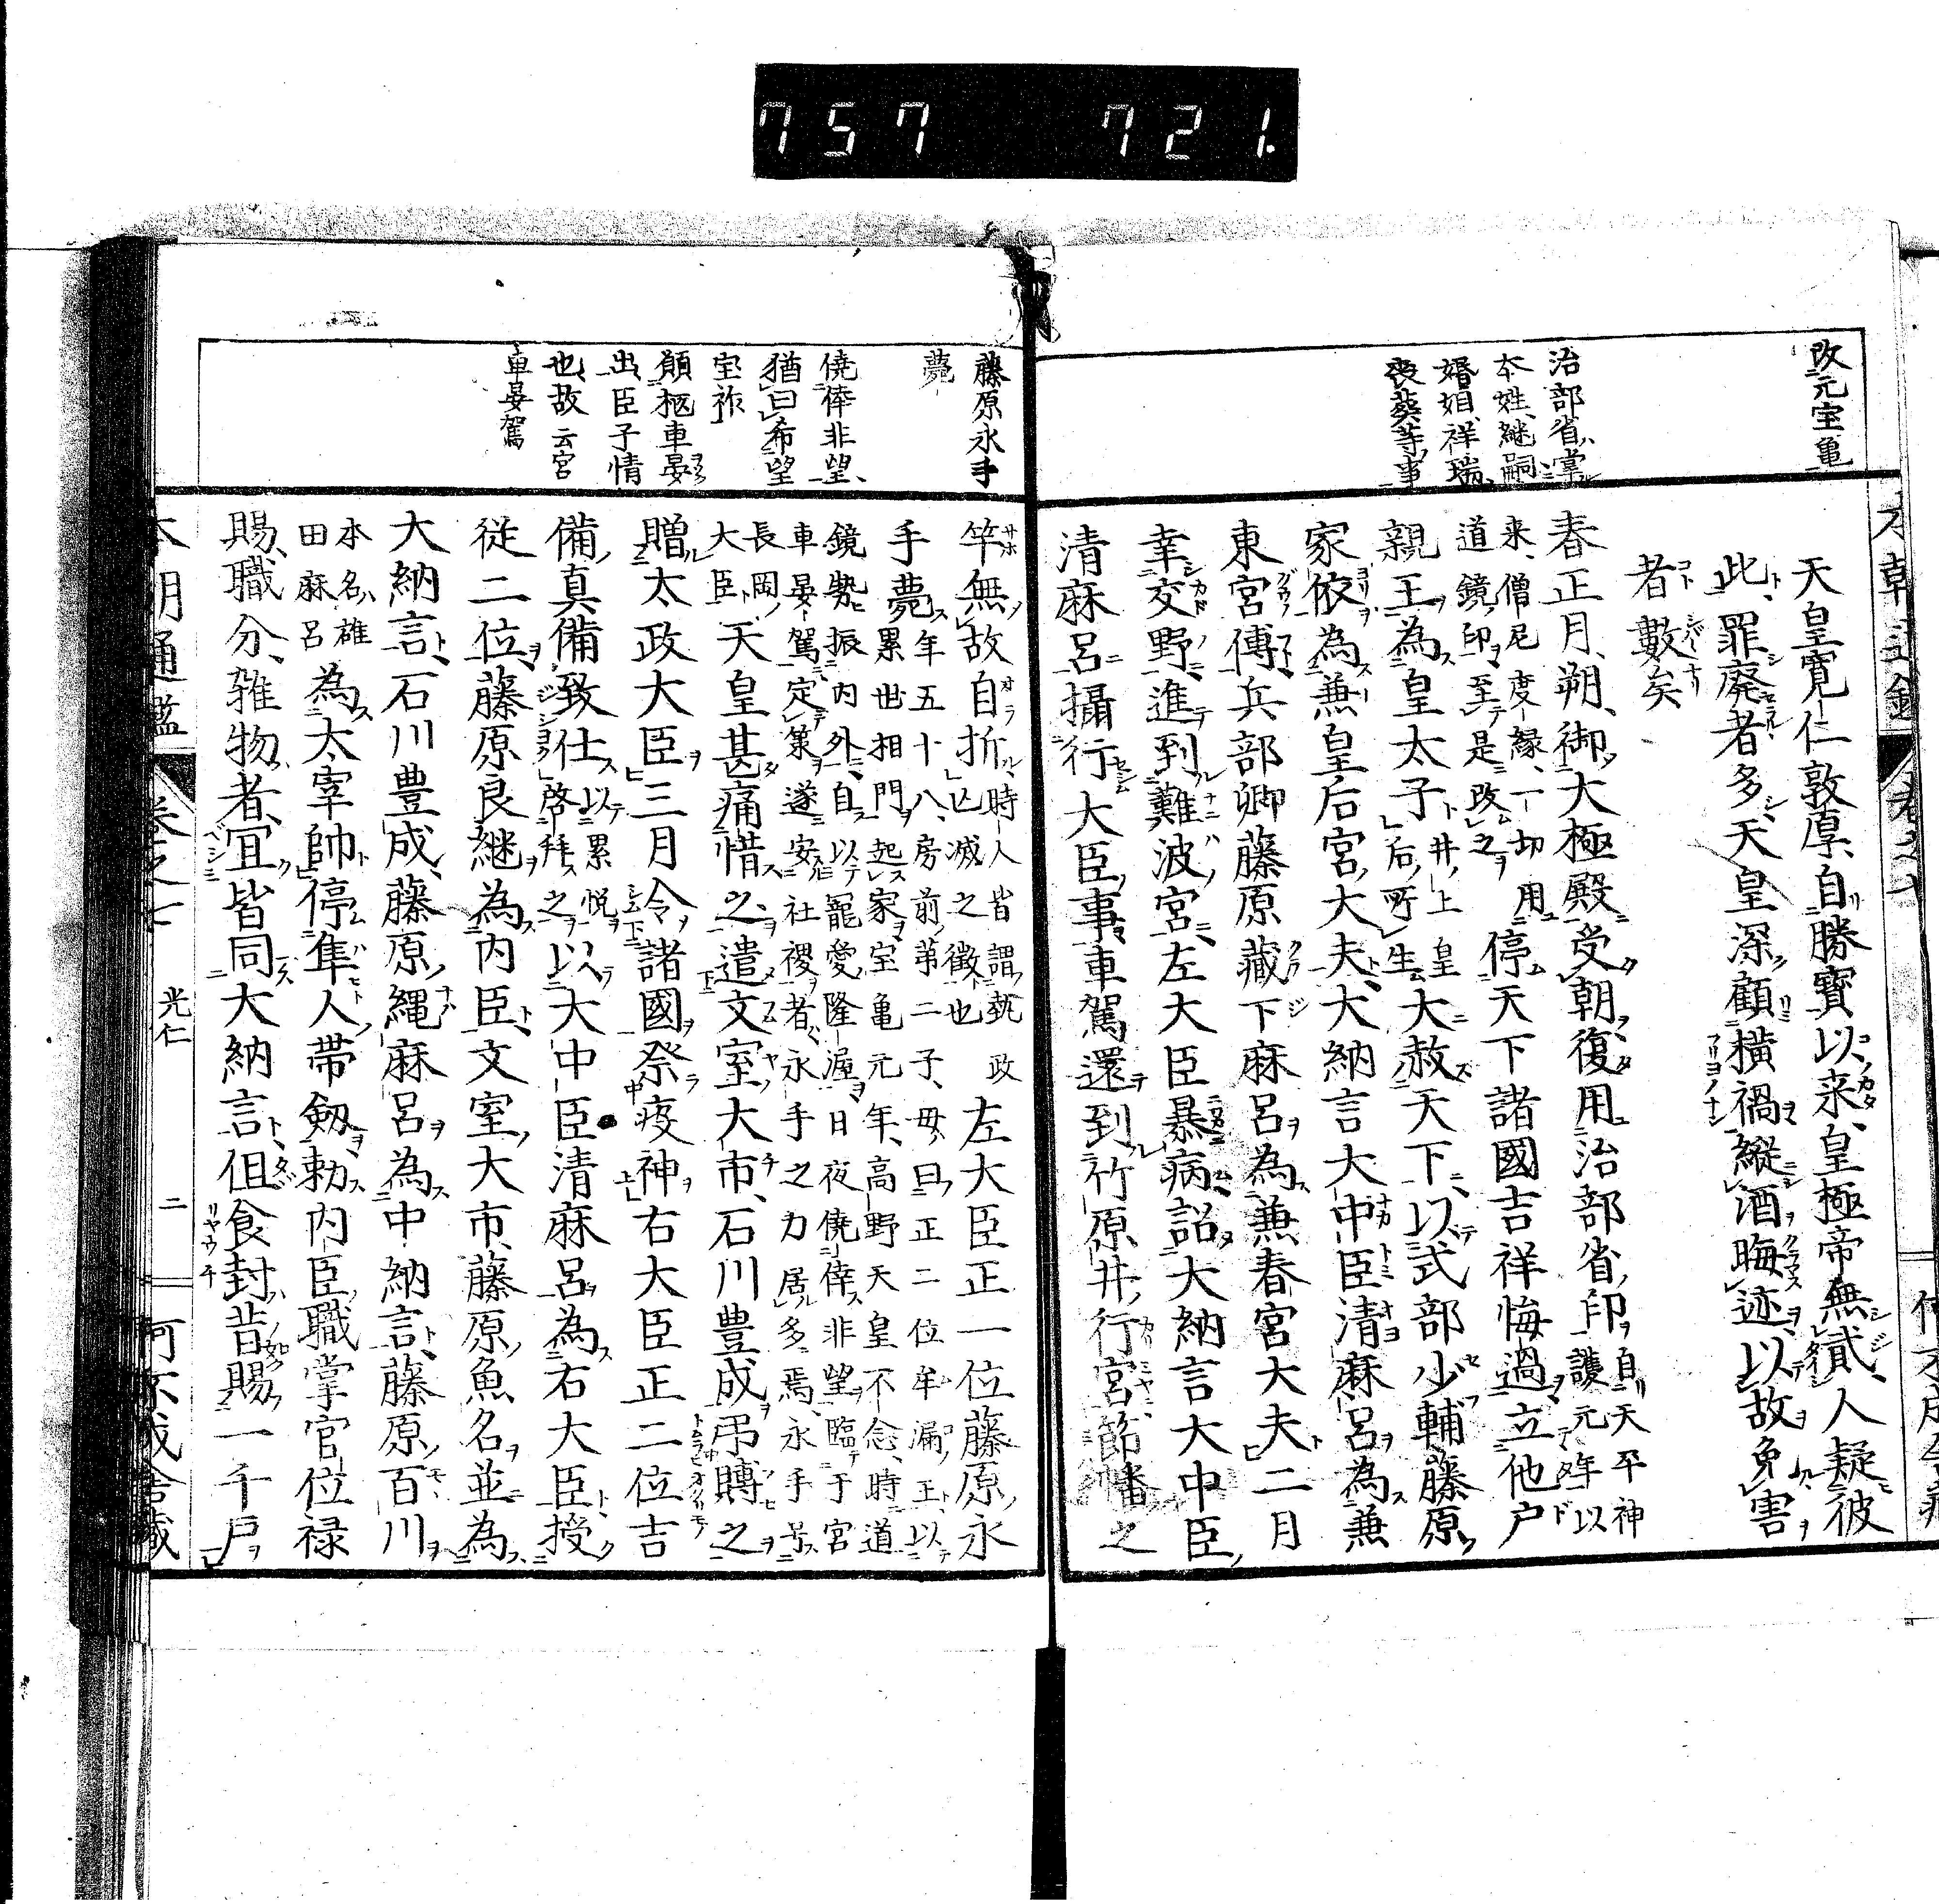 757 721.
改元宝亀
治部省掌
本姓継嗣
婚姻祥瑞
喪葬等事
天皇寛仁敦厚自勝寶以来皇極帝無貳人疑彼
此罪廃者多天皇深顧横禍縦酒晦迹以故免害
者數矣
春正月朔御大極殿受朝復用治部省印自天平神
護元年以
来僧尼度縁一切用
道鏡印至是改之
停天下諸國吉祥悔過立他戸
親王為皇太子井上皇
后所生
大赦天下以式部少輔藤原
家依為兼皇后宮大夫大納言大中臣清麻呂為兼
東宮傅兵部卿藤原藏下麻呂為兼春宮大夫二月
幸交野進到難波宮左大臣暴病詔大納言大中臣
清麻呂攝行大臣事車駕還到竹原井行宮節幡之
藤原永手
薨
僥倖非望
猶曰希望
宝祚
願柩車晏
出臣子情
也故云宮
車晏駕
竿無故自折時人皆謂執政
亾滅之徴也
左大臣正一位藤原永
手薨年五十八房前第二子母曰正二位牟漏王以
累世相門起家室亀元年高野天皇不念時道
鏡勢振内外自以寵愛隆渥日夜僥倖非望臨于宮
車晏駕定策遂安社稷者永手之力居多焉永手号
長岡
大臣
天皇甚痛惜之遣文室大市石川豊成弔賻之
贈太政大臣三月令諸國祭疫神右大臣正二位吉
備真備致仕以累
啓拜之
悦以大中臣清麻呂為右大臣授
従二位藤原良継為内臣文室大市藤原魚名並為
大納言石川豊成藤原縄麻呂為中納言藤原百川
本名雄
田麻呂
為太宰帥停隼人帯剱勅内臣職掌官位禄
賜職分雑物者宜皆同大納言但食封昔賜一千戸
本朝通鑑 巻之七 光仁 二